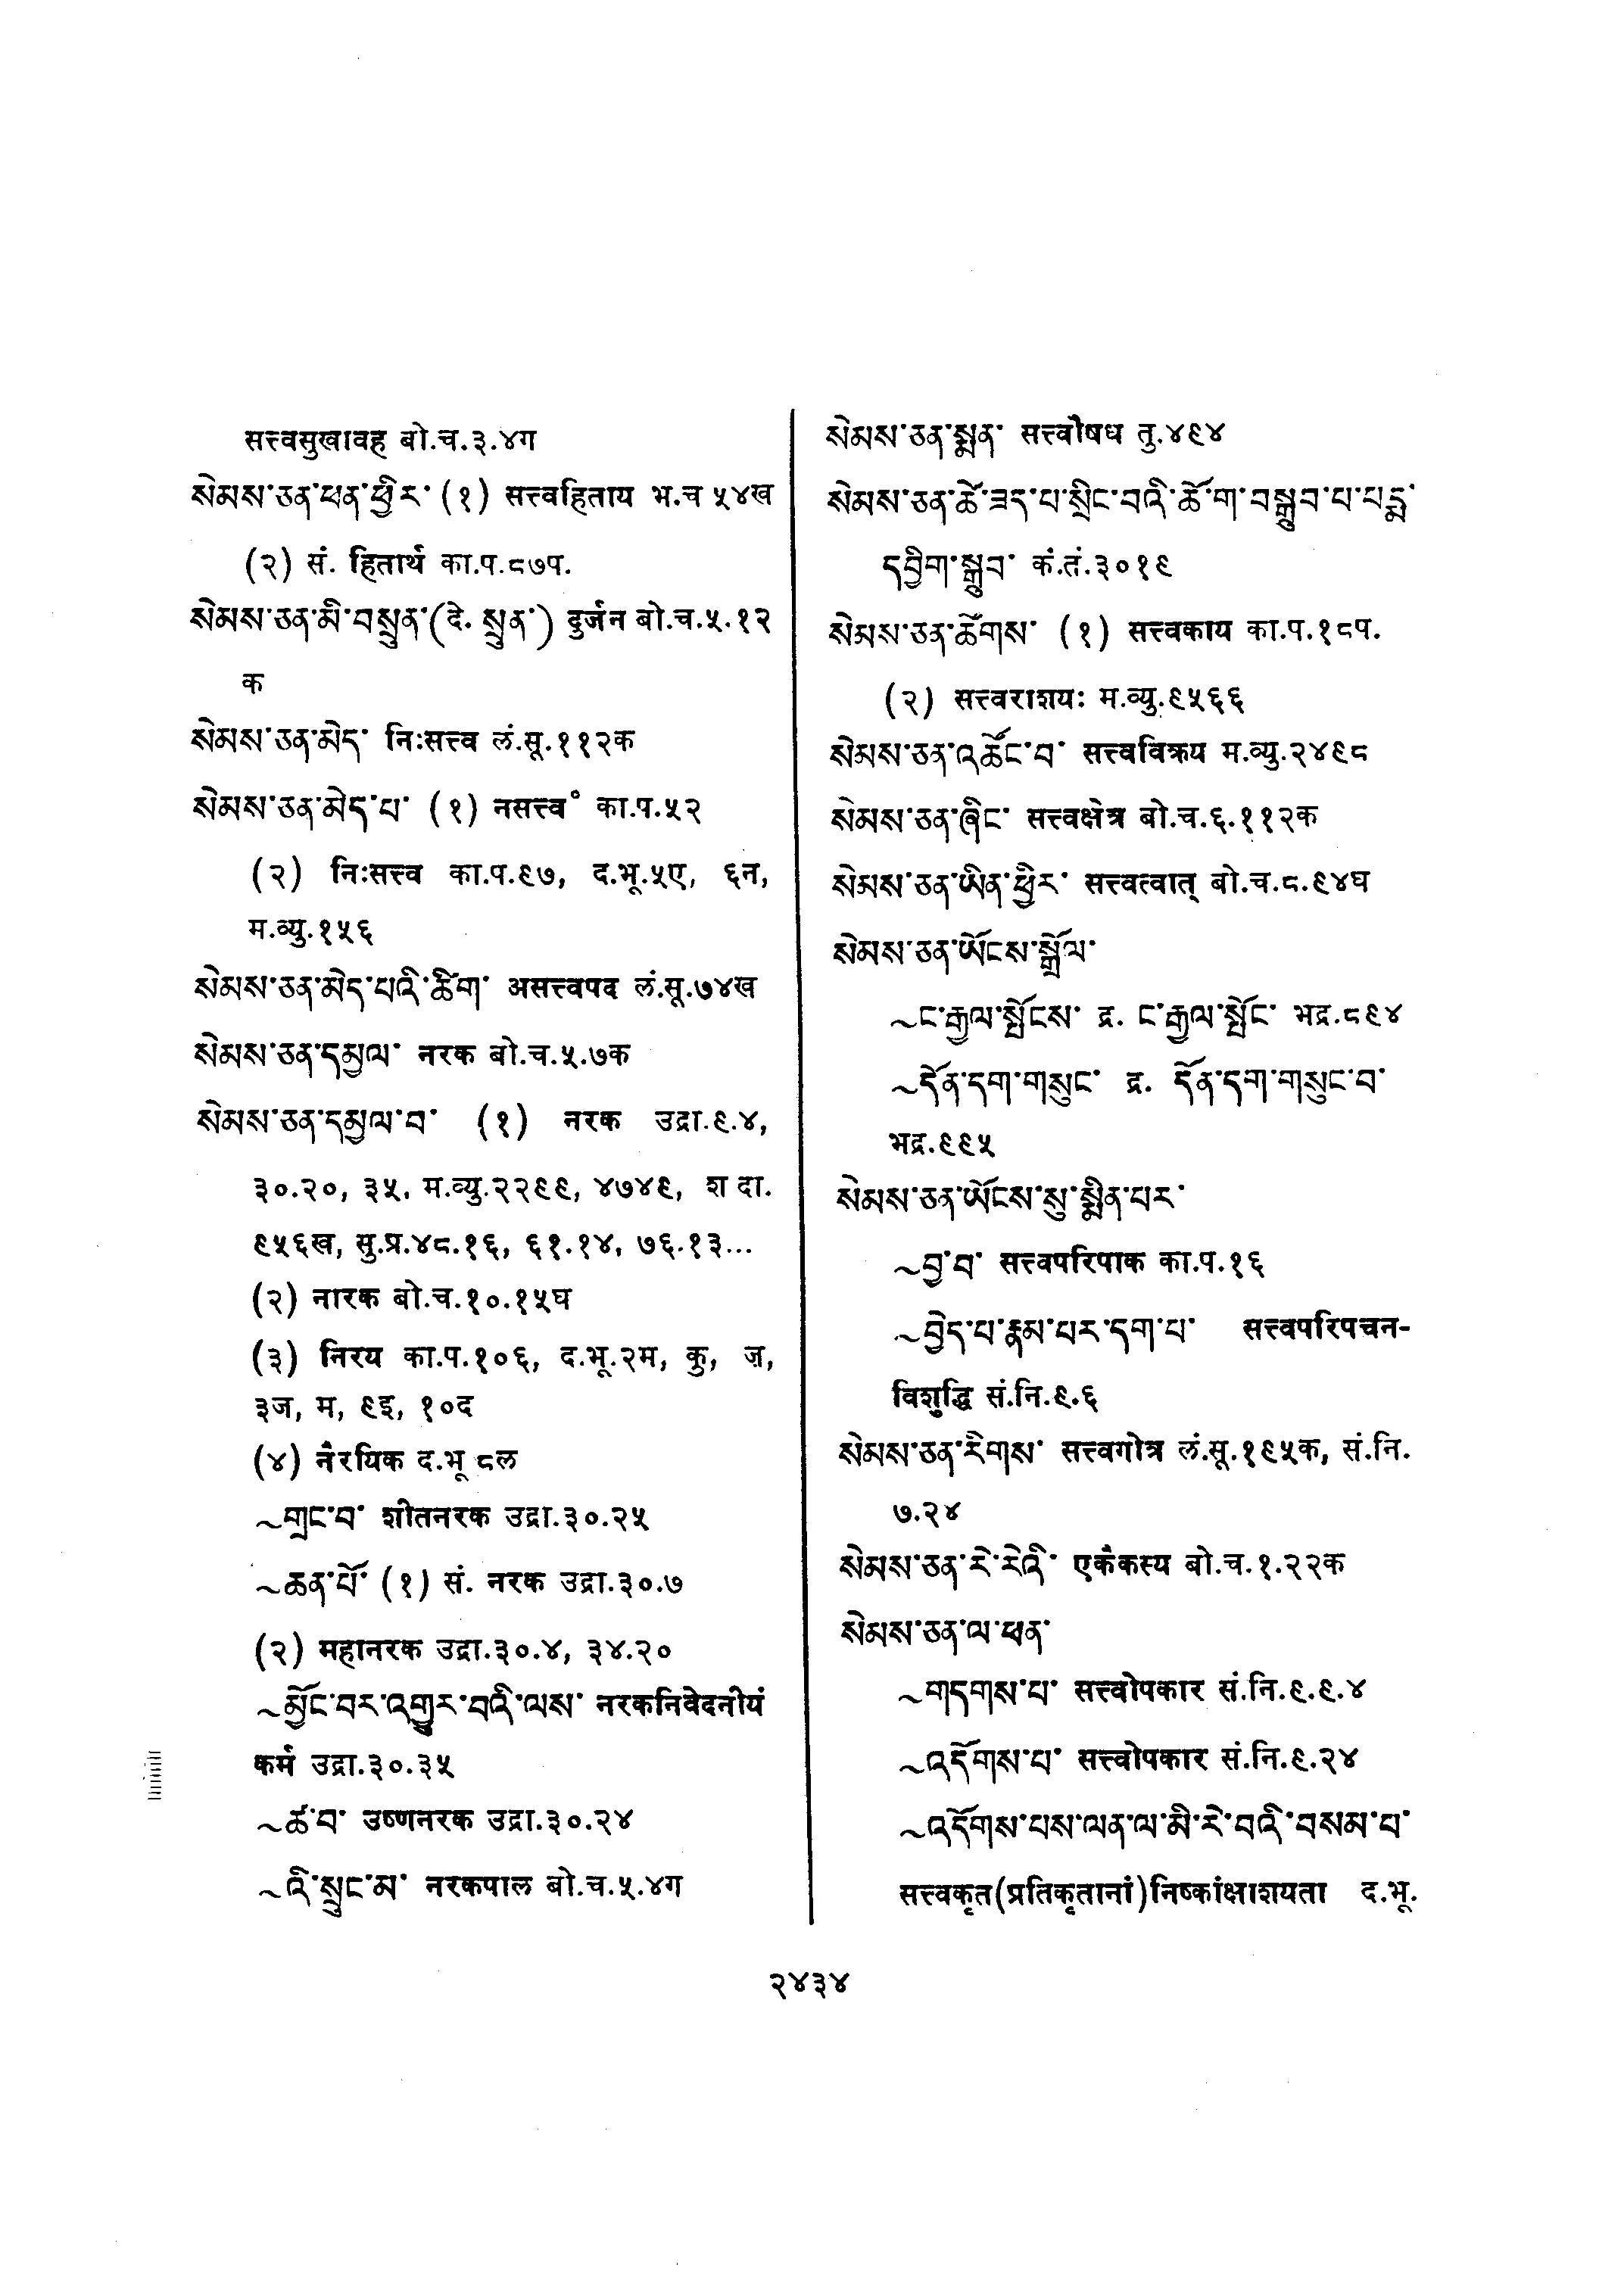 सत्त्वसुखावह बो.च.३.४ग
སེམས་ཅན་ཕན་ཕྱིར་ (१) सत्त्वहिताय भ.च ५४ख
(२) सं. हितार्थ का.प.८७प.
སེམས་ཅན་མི་བསྲུན་(दे. སྲུན་) दुर्जन बो.च.५.१२
क
སེམས་ཅན་མེད་ निःसत्त्व लं.सू.११२क
སེམས་ཅན་མེད་པ་ (१) नसत्त्व° का.प.५२
(२) निःसत्त्व का.प.९७, द.भू.५ए, ६न,
म.व्यु.१५६
སེམས་ཅན་མེད་པའི་ཚིག་ असत्त्वपद लं.सू.७४ख
སེམས་ཅན་དམྱལ་ नरक बो.च.५.७क
སེམས་ཅན་དམྱལ་བ་ (१) नरक उद्रा.९.४,
३०.२०, ३५, म.व्यु.२२९९, ४७४९, श दा.
९५६ख, सु.प्र.४८.१६, ६१.१४, ७६.१३...
(२) नारक बो.च.१०.१५घ
(३) निरय का.प.१०६, द.भू.२म, कु, ज,
३ज, म, ९इ, १०द
(४) नैरयिक द.भू ८ल
~གྲང་བ་ शीतनरक उद्रा.३०.२५
~ཆན་པོ་ (१) सं. नरक उद्रा.३०.७
(२) महानरक उद्रा.३०.४, ३४.२०
~མྱོང་བར་འགྱུར་བའི་ལས་ नरकनिवेदनीयं
कर्म उद्रा.३०.३५
~ཚ་བ་ उष्णनरक उद्रा.३०.२४
~འི་སྲུང་མ་ नरकपाल बो.च.५.४ग
སེམས་ཅན་སྨན་ सत्त्वौषध तु.४९४
སེམས་ཅན་ཚེ་ཟད་པ་སྲིང་བའི་ཆོ་ག་བསྒྲུབ་པ་པདྨ་
དབྱིག་སྒྲུབ་ कं.तं.३०१९
སེམས་ཅན་ཚོགས་ (१) सत्त्वकाय का.प.१८प.
(२) सत्त्वराशयः म.व्यु.९५६६
སེམས་ཅན་འཚོང་བ་ सत्त्वविक्रय म.व्यु.२४९८
སེམས་ཅན་ཞིང་ सत्त्वक्षेत्र बो.च.६.११२क
སེམས་ཅན་ཡིན་ཕྱིར་ सत्त्वत्वात् बो.च.८.९४घ
སེམས་ཅན་ཡོངས་སྒྲོལ་
~ང་རྒྱལ་སྤོངས་ द्र. ང་རྒྱལ་སྤོང་ भद्र.८९४
~དོན་དག་གསུང་ द्र. དོན་དག་གསུང་བ་
भद्र.९९५
སེམས་ཅན་ཡོངས་སུ་སྨིན་པར་
~བྱ་བ་ सत्त्वपरिपाक का.प.१६
~བྱེད་པ་རྣམ་པར་དག་པ་ सत्त्वपरिपचन-
विशुद्धि सं.नि.९.६
སེམས་ཅན་རིགས་ सत्त्वगोत्र लं.सू.१९५क, सं.नि.
७.२४
སེམས་ཅན་རེ་རེའི་ एकैकस्य बो.च.१.२२क
སེམས་ཅན་ལ་ཕན་
~གདགས་པ་ सत्त्वोपकार सं.नि.९.९.४
~འདོགས་པ་ सत्त्वोपकार सं.नि.९.२४
~འདོགས་པས་ལན་ལ་མི་རེ་བའི་བསམ་པ་
सत्त्वकृत(प्रतिकृतानां)निष्कांक्षाशयता द.भू.
२४३४